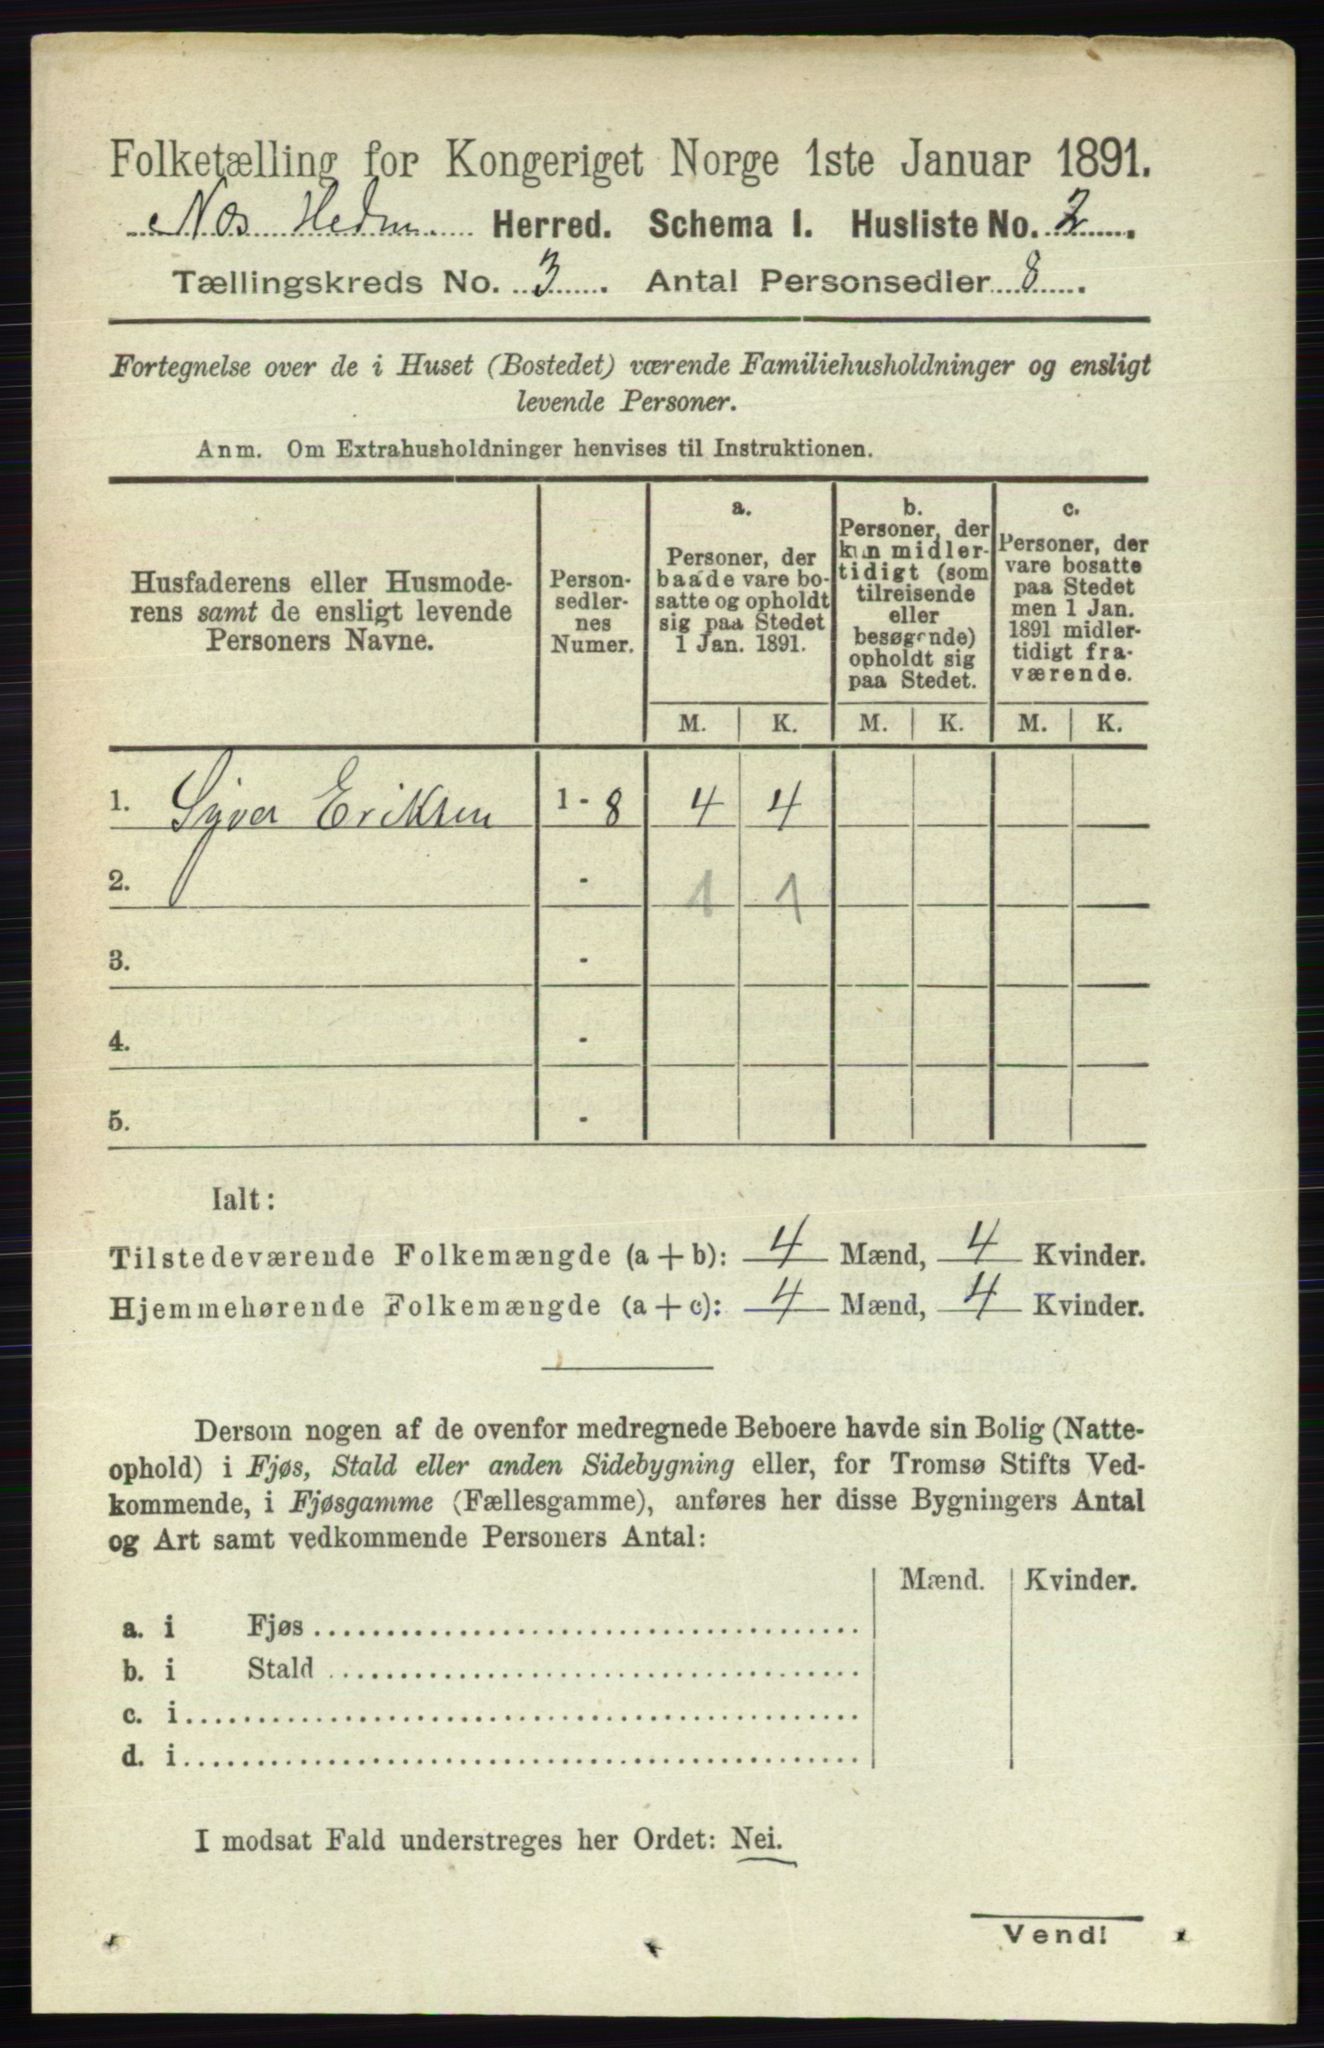 Folketælling for Kongeriget Norge 1ste Januar 1891.
Nes Hedm. Herred. Schema I. Husliste No. 2.
Tællingskreds No. 3. Antal Personsedler 8.
Fortegnelse over de i Huset (Bostedet) værende Familiehusholdninger og ensligt
levende Personer.
Anm. Om Extrahusholdninger henvises til Instruktionen.
Husfaderens eller Husmode-
rens samt de ensligt levende
Personers Navne.
Person-
sedler-
nes
Numer.
a.
Personer, der
baade vare bo-
satte og opholdt
sig paa Stedet
1 Jan. 1891.
b.
Personer, der
kun midler-
tidigt (som
tilreisende
eller
besøgende)
opholdt sig
paa Stedet.
c.
Personer, der
vare bosatte
paa Stedet
men 1 Jan.
1891 midler-
tidigt fra-
værende.
M. K. M. K. M. K.
1. Syver Eriksen 1 - 8 4 4
2. - 1 1
3. -
4. -
5. -
Ialt:
Tilstedeværende Folkemængde (a + b): 4 Mænd, 4 Kvinder.
Hjemmehørende Folkemængde (a + c): 4 Mænd, 4 Kvinder.
Dersom nogen af de ovenfor medregnede Beboere havde sin Bolig (Natte-
ophold) i Fjøs, Stald eller anden Sidebygning eller, for Tromsø Stifts Ved-
kommende, i Fjøsgamme (Fællesgamme), anføres her disse Bygningers Antal
og Art samt vedkommende Personers Antal:
Mænd. Kvinder.
a. i Fjøs
b. i Stald
c. i
d. i
I modsat Fald understreges her Ordet: Nei.
Vend!